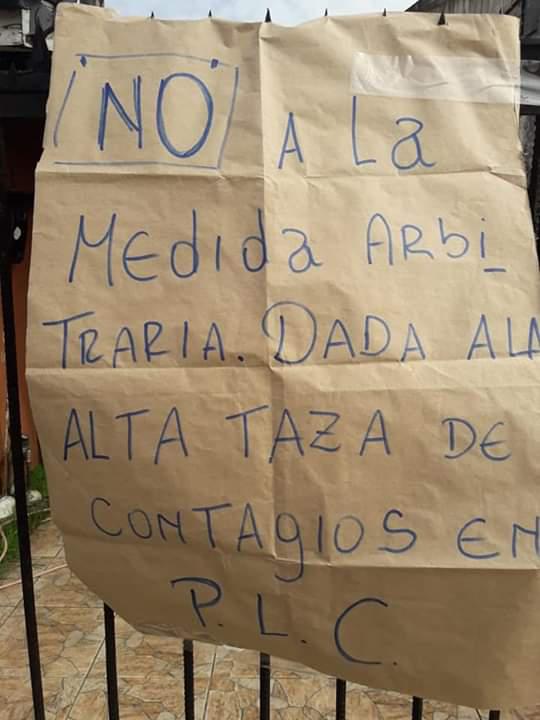 NO A La
MEdida ARbi_
TRARIA. DADA ALA
ALTA TAZA DE
CONTAgIOS EN
P.L.C.